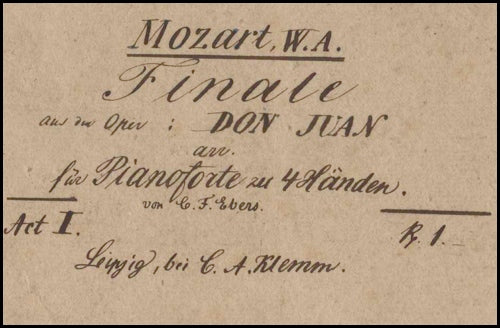 Mozart, W.A.
Finale
aus der Oper : DON JUAN
arr.
für Pianoforte zu 4 Händen.
von C. F. Ebers.
Act I.
R. 1.–
Leipzig, bei C. A. Klemm.